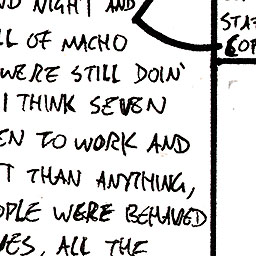 ND NIGHT AND
LL OF MACHO
WERE STILL DOIN'
I THINK SEVEN
EN TO WORK AND
T THAN ANYTHING,
OPLE WERE BEHAVED
VES. ALL THE
STA
COP